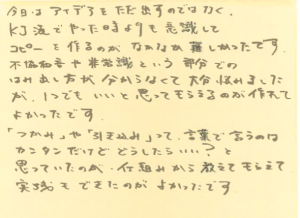 今日はアイデアをただ出すのではなく、
KJ法でやった時よりも意識して
コピーを作るのがなかなか難しかったです。
不協和音や非常識という部分での
はみ出し方が分からなくて大分悩みました
が、1つでもいいと思ってもらえるのが作れて
よかったです。
「つかみ」や「引き込み」って、言葉で言うのは
カンタンだけどどうしたらいい?と
思っていたのが、仕組みから教えてもらえて
実践もできたのがよかったです